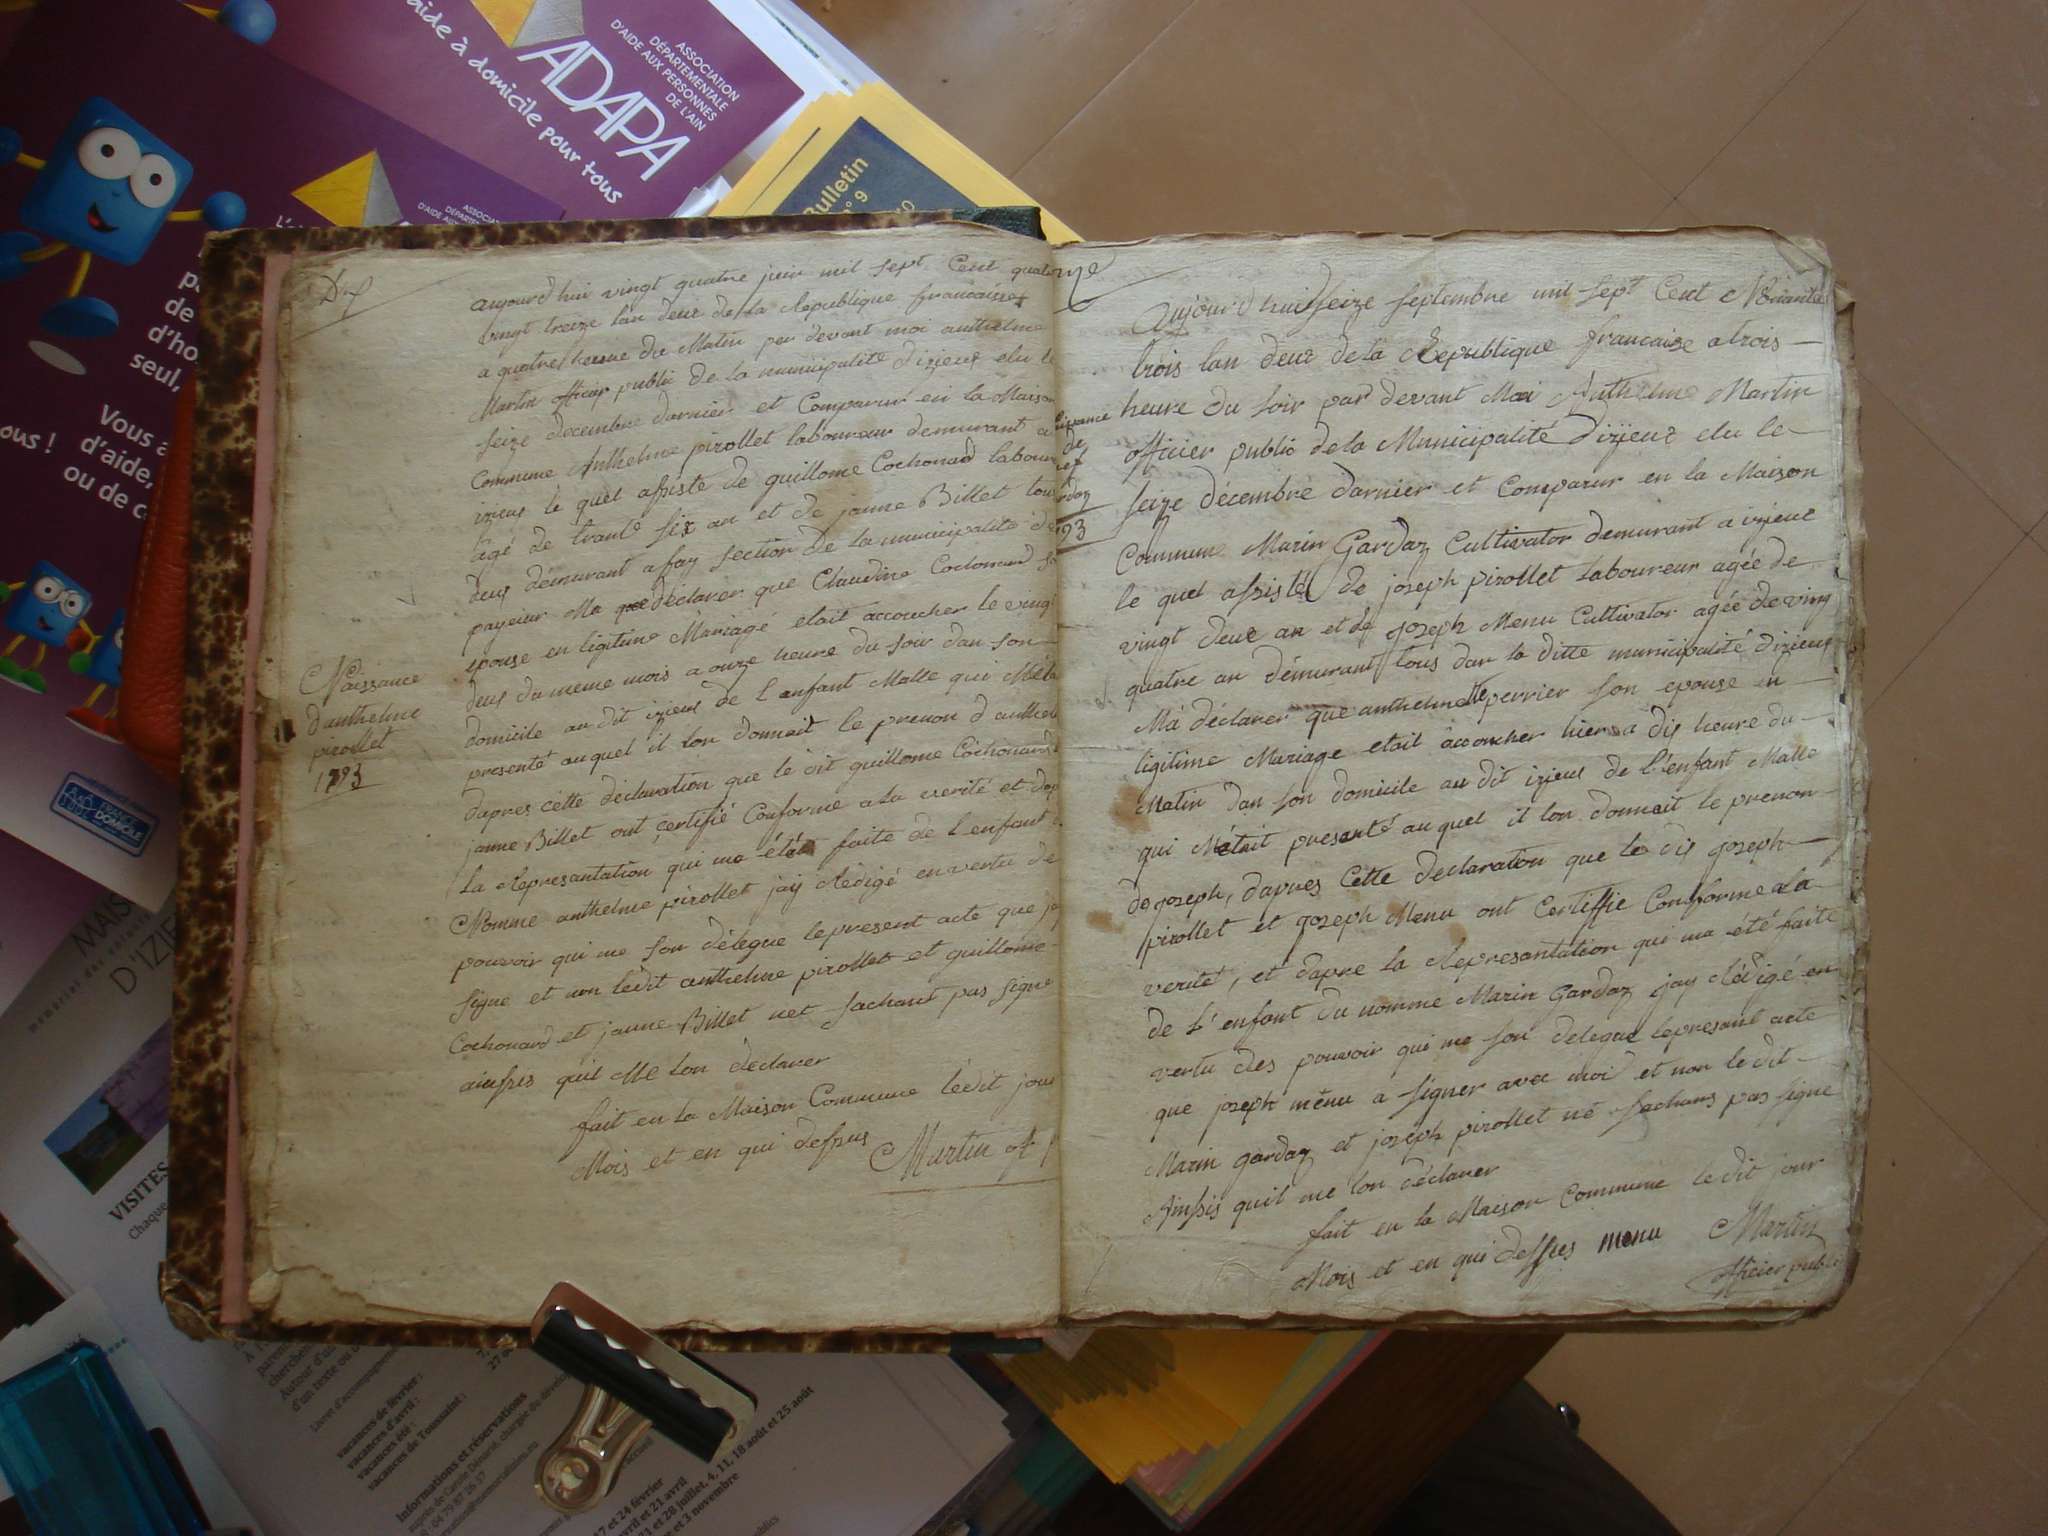 aide à domicile pour tous
ADAPA
ASSOCIATION
DÉPARTEMENTALE
D'AIDE AUX PERSONNES
DE L'AIN
Bulletin
n° 9
seul,
Vous
d'aide,
ou de
FRANCE
DOMICILE
D'IZIE
VISITES
Chaque
vacances de février :
vacances d'avril :
vacances été :
vacances de Toussaint :
Informations et réservations
17 et 24 février
et 21 avril
et 28 juillet, 4, 11, 18 août et 25 août
et 3 novembre
aujourd'hui vingt quatre juin mil sept Cent quatre
vingt treize lan deux de la Republique francaise
a quatre heure du Matin par devant moi anthelme
Martin officier public de la municipalité dizieux elu le
seize decembre darnier et Comparur en la Maison
Commune Anthelme pirollet laboureur demurant a
izieux le quel assiste de guillome Cochonad labour
agé de trante six an et de janne Billet tous
deux demurant a fay section de la municipalité de
payeiur Ma que déclarer que Claudine Cochonard
epouse en ligitime Mariagé etait accoucher le vingt
deux du meme mois a onze heure du soir dan son
domicile au dit izieux de l'anfant Malle qui Meta
presenté auquel il lon donnait le prenon d'anthel
dapres cette déclaration que le dit guillome Cochonard
janne Billet ont certifié Conforme a la verité et dap
la Represantation qui ma été faite de l'enfant
Nomme anthelme pirollet jay Redigé en vertu de
pouvoir qui me son délegue le present acte que je
signe et non ledit anthelme pirollet et guillome
Cochonard et janne Billet net sachant pas signe
ainssis quil Me lon déclarer
fait en la Maison Commune ledit jour
Mois et en qui dessus Martin of
Naissance
danthelme
pirollet
1793
de
93
Aujourd'hui seize septembre mil sept Cent Nonante
trois lan deux de la Republique francaise a trois
heure du soir par devant Moi Anthelme Martin
officier public de la Municipalité Dizieux elu le
seize décembre darnier et Comparur en la Maison
Commune Marin Gardaz Cultivator demurant a izieux
le quel assisté de joseph pirollet Laboureur agée de
vingt deux an et de joseph Menu Cultivator agée de ving
quatre an démurant tous dan la ditte municipalité dizieux
Má déclarer que anthelmette perrier son epouse en
ligitime Mariage etait accoucher hier a dix heure du
Matin dan son domicile au dit izieux de l'enfant Malle
qui Métait presanté auquel il lon donnait le prenon
de joseph, dapres Cette declaration que le dis joseph
pirollet et joseph Menu ont Certiffie Conforme a La
verité, et dapre La Represantation qui ma été faite
de L'enfant du nomme Marin Gardaz jay Rédigé en
vertu des pouvoir qui me son delegue lepresant acte
que joseph menu a signer avec moi et non le dit
Marin gardaz et joseph pirollet né sachans pas signe
Ainssis quil me lon déclarer
fait en la Maison Commune le dit jour
Mois et en qui dessus menu Martin
officier public